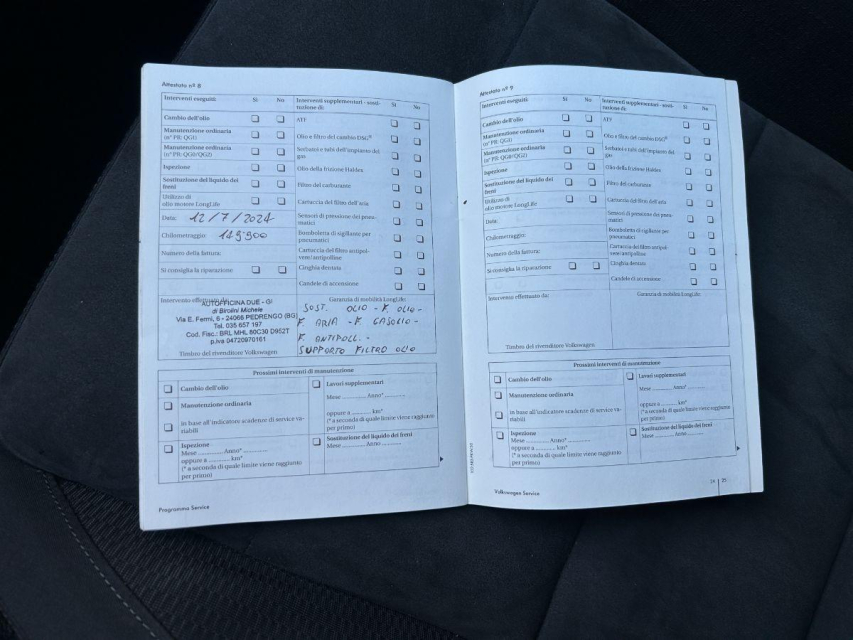 Attestato nº 8
Interventi eseguiti: Sì No Interventi supplementari - sosti- Sì No
tuzione di:
Cambio dell'olio ATF
Manutenzione ordinaria
(nº PR: QG1) Olio e filtro del cambio DSG®
Manutenzione ordinaria
(nº PR: QG0/QG2) Serbatoi e tubi dell'impianto del
gas
Ispezione Olio della frizione Haldex
Sostituzione del liquido dei
freni Filtro del carburante
Utilizzo di
olio motore LongLife Cartuccia del filtro dell'aria
Data: 12/7/2024 Sensori di pressione dei pneu-
matici
Chilometraggio: Bomboletta di sigillante per
pneumatici
Numero della fattura: Cartuccia del filtro antipol-
vere/antipolline
Si consiglia la riparazione Cinghia dentata
Candele di accensione
Intervento effettuato da: Garanzia di mobilità LongLife:
AUTOFFICINA DUE - GI
di Birolini Michele
Via E. Fermi, 6 - 24066 PEDRENGO (BG)
Tel. 035 657 197
Cod. Fisc.: BRL MHL 60C30 D952T
p.iva 04720970161
SOST. OLIO - F. OLIO -
F. ARIA - F. GASOLIO -
F. ANTIPOLL. -
SUPPORTO FILTRO OLIO
Timbro del rivenditore Volkswagen
Prossimi interventi di manutenzione
Cambio dell'olio
Manutenzione ordinaria
in base all'indicatore scadenze di service va-
riabili
Ispezione
Mese ............ Anno* ............
oppure a ............ km*
(* a seconda di quale limite viene raggiunto
per primo)
Lavori supplementari
Mese ............ Anno* ............
oppure a ............ km*
(* a seconda di quale limite viene raggiunto
per primo)
Sostituzione del liquido dei freni
Mese ............ Anno ............
Programma Service
Attestato nº 9
Interventi eseguiti: Sì No Interventi supplementari - sosti- Sì No
tuzione di:
Cambio dell'olio ATF
Manutenzione ordinaria
(nº PR: QG1) Olio e filtro del cambio DSG®
Manutenzione ordinaria
(nº PR: QG0/QG2) Serbatoi e tubi dell'impianto del
gas
Ispezione Olio della frizione Haldex
Sostituzione del liquido dei
freni Filtro del carburante
Utilizzo di
olio motore LongLife Cartuccia del filtro dell'aria
Data: Sensori di pressione dei pneu-
matici
Chilometraggio: Bomboletta di sigillante per
pneumatici
Numero della fattura: Cartuccia del filtro antipol-
vere/antipolline
Si consiglia la riparazione Cinghia dentata
Candele di accensione
Intervento effettuato da: Garanzia di mobilità LongLife:
Timbro del rivenditore Volkswagen
Prossimi interventi di manutenzione
Cambio dell'olio
Manutenzione ordinaria
in base all'indicatore scadenze di service va-
riabili
Ispezione
Mese ............ Anno* ............
oppure a ............ km*
(* a seconda di quale limite viene raggiunto
per primo)
Lavori supplementari
Mese ............ Anno* ............
oppure a ............ km*
(* a seconda di quale limite viene raggiunto
per primo)
Sostituzione del liquido dei freni
Mese ............ Anno ............
Volkswagen Service